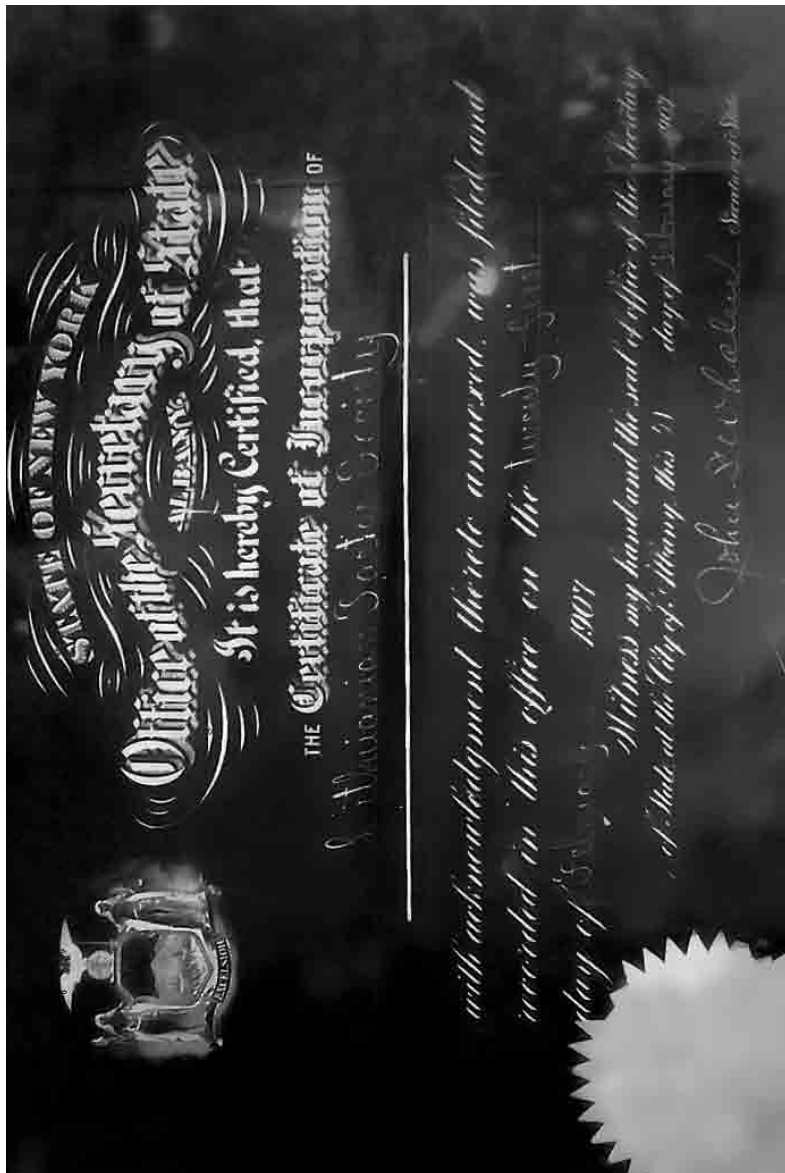 STATE OF NEW YORK
Office of the Secretary of State
ALBANY.
It is hereby Certified, that
THE Certificate of Incorporation OF
Lithuanian Society
with acknowledgment thereto annexed, was filed and
recorded in this office on the twenty first
day of February 1907
Witness my hand and the seal of office of the Secretary
of State, at the City of Albany this 21
day of February 1907
John S. Whalen Secretary of State
EXCELSIOR